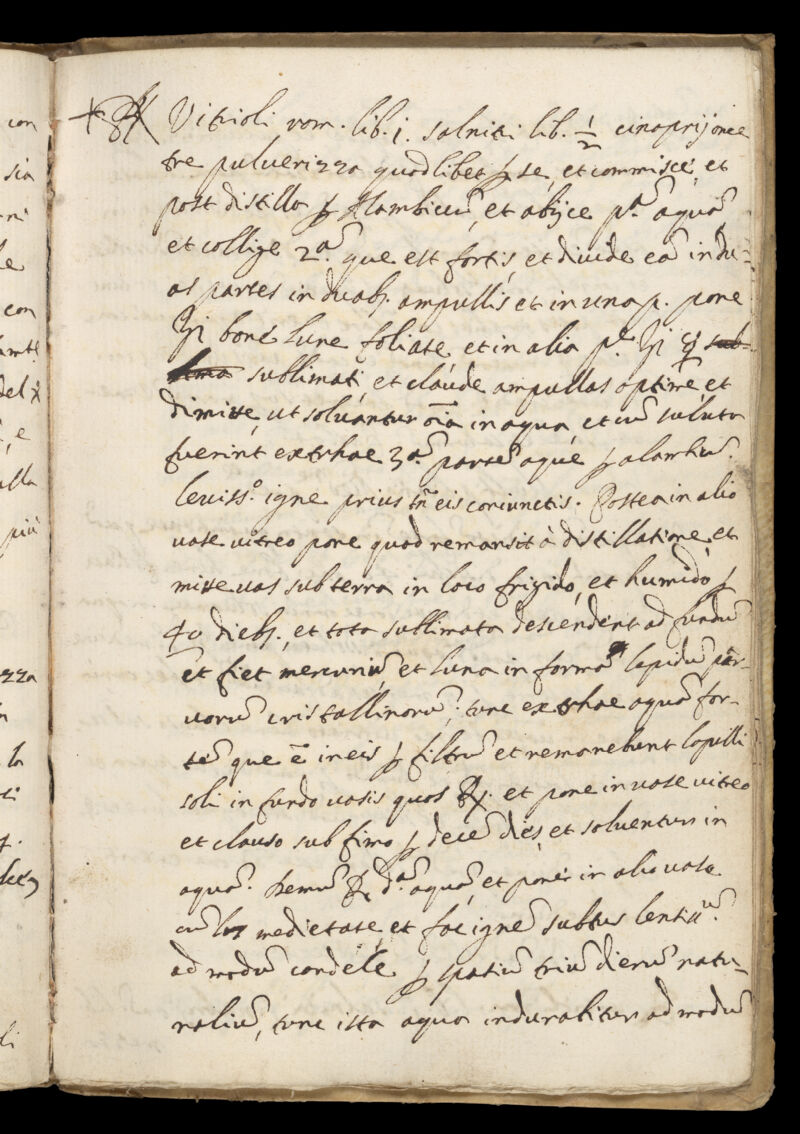 Vitrioli rom. lib. j. salnitri lib. 1/2 cinaprij once
tre pulverizza quodlibet p se, et commisce, et
post distilla p Alambicũ, et abijce pª. aquã
et collige 2ª. que est fortis, et divide eã in du-
as partes in duab. ampullis et in una p. pone
℥j boné lune foliate, et in alia pᵉ. ℥j ☿ sub-
lima sublimati, et claude ampullas optime, et
dimitte, ut solvantur oĩa in aqua, et cũ soluta
fuerint extrhae 3ª. partẽ aque p alambic.
leviss.º igne prius tñ eis coniunctis. Postea in alio
vase vitreo pone quod remansit à distillatione, et
mitte vas sub terra in loco frigido, et humido p
40 dieb., et tota sullimata descendent ad fundũ
et fiet mercuriũ, et luna in forma lapidũ par-
vorũ cristallinorũ; tunc extrhae aquã for-
tẽ que ẽ in eis p filtrũ et remanebunt lapilli
soli in fundo vasis quos ℞. et pone in vase vitreo
et clauso sub fimo p decẽ dies, et solventur in
aquã. Demũ ℞ dª. aquã, et pone in alio vase
cũ medietate, et fac ignẽ subtus lentiss.
ad modũ candele p spatiũ triũ dierũ natu-
raliũ, tunc ista aqua indurabitur ad modũ
con
sia
ni
le
con
del
e
alla
più
zza
n
la
ti
li